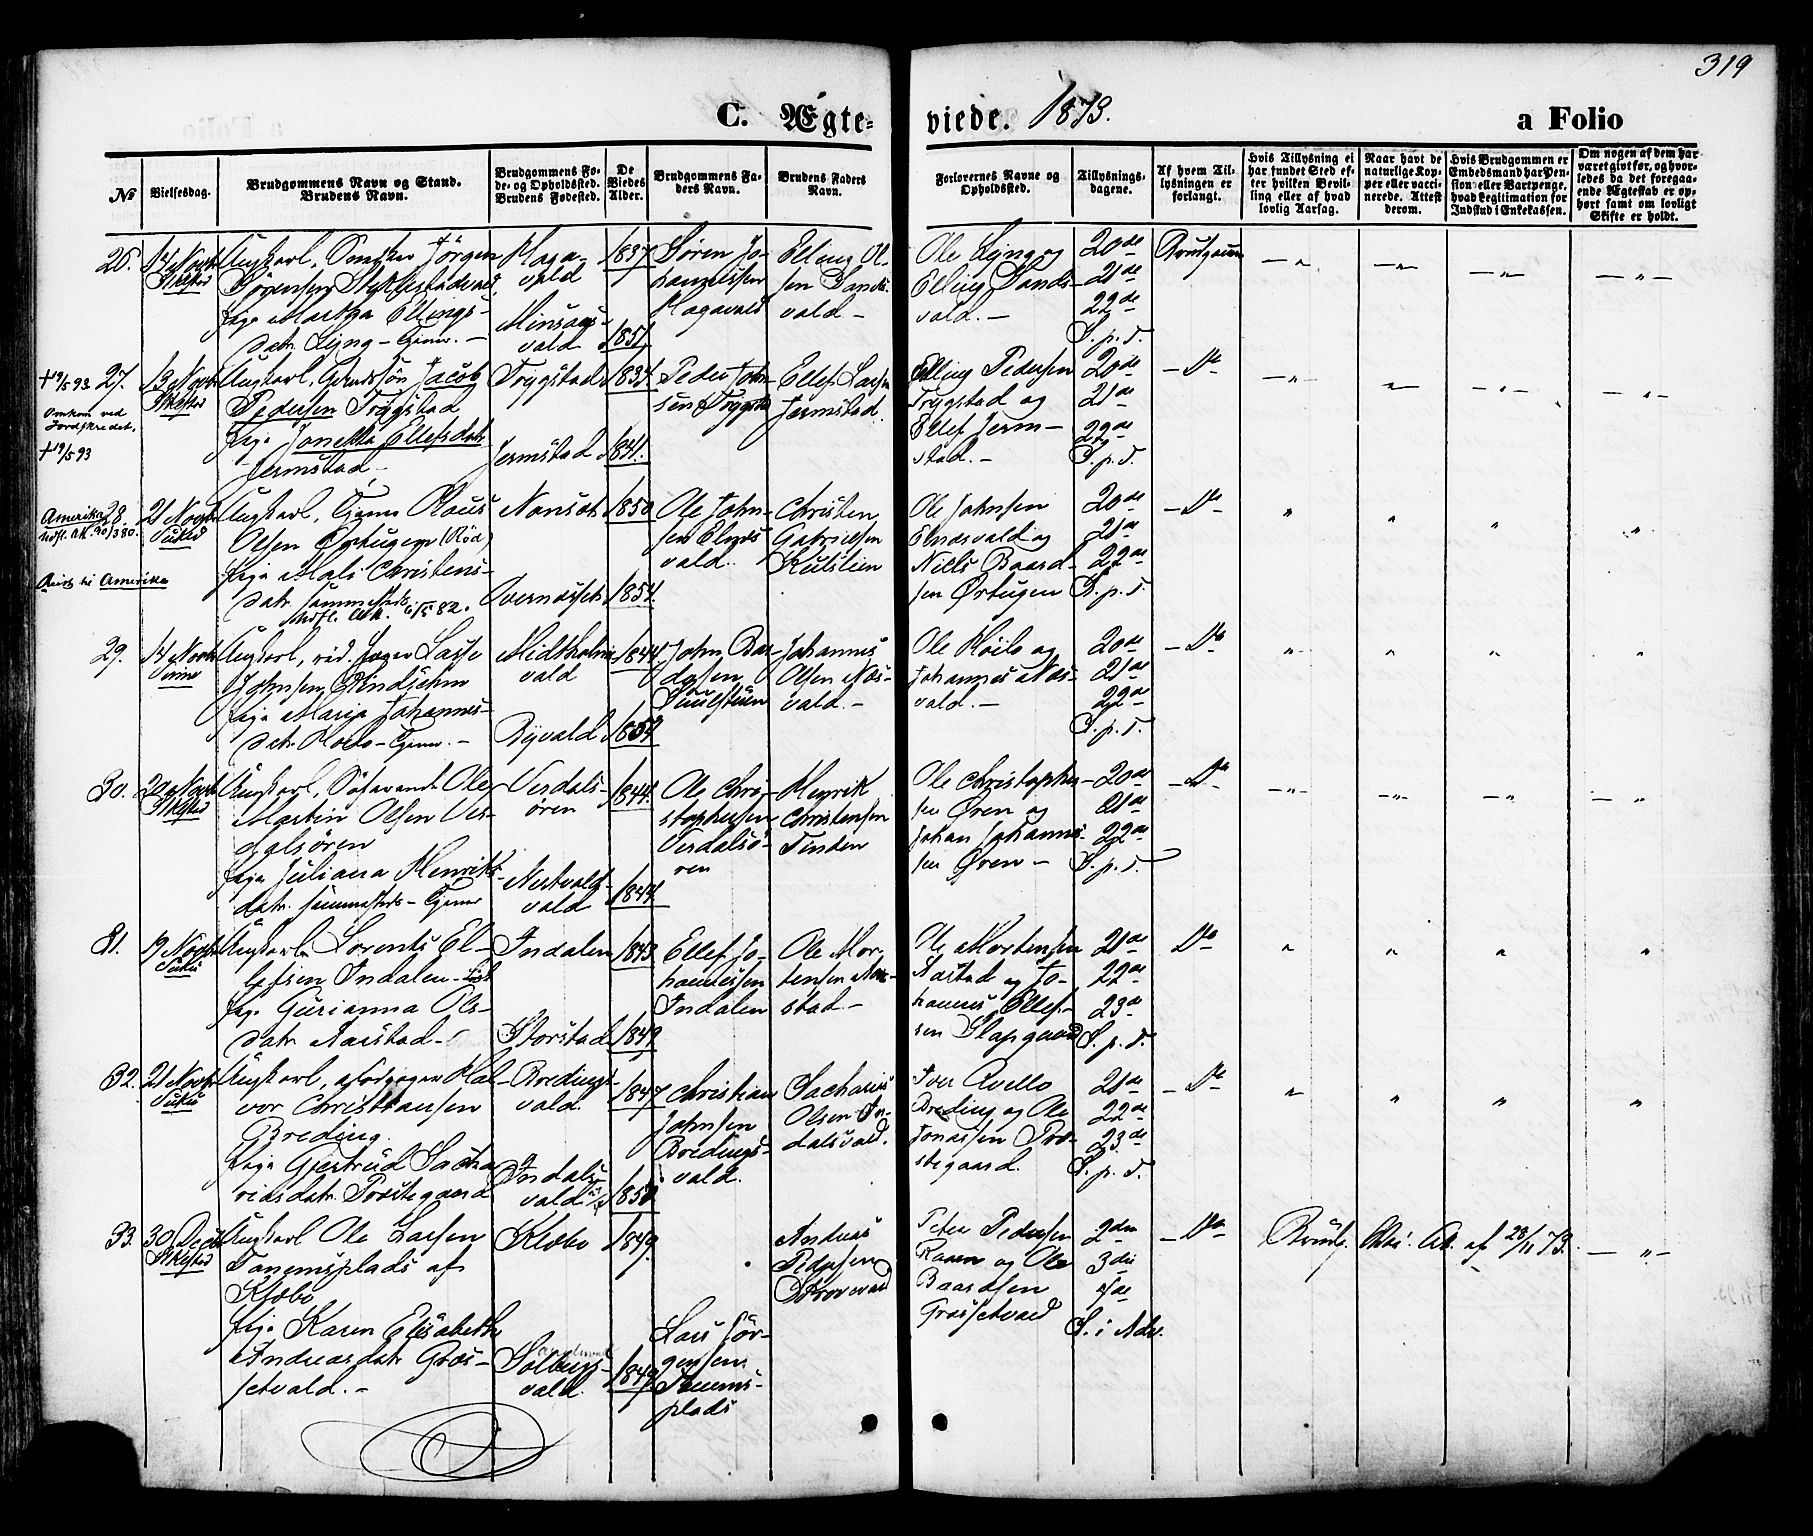 319
C. Ægte-
viede. 1873.
a Folio
No
Vielsesdag.
Brudgommens Navn og Stand.
Brudens Navn.
Brudgommens Fø-
de- og Opholdssted.
Brudens Fødested.
De
Viedes
Alder.
Brudgommens Fa-
ders Navn.
Brudens Faders
Navn.
Forlovernes Navne og
Opholdssted.
Tillysnings-
dagene.
Af hvem Til-
lysningen er
forlangt.
Hvis Tillysning ei
har fundet Sted ef-
ter hvilken Bevil-
ling eller af hvad
lovlig Aarsag.
Naar havt de
naturlige Kop-
per eller vacci-
nerede. Attest
derom.
Hvis Brudgommen er
Embedsmand har Pen-
sion eller Vartpenge,
hvad Legitimation for
Indskud i Enkekassen.
Om nogen af dem har
været givt før, og hvor-
ledes da det foregaa-
ende Ægteskab er op-
hørt samt om lovligt
Skifte er holdt.
26.
14 Novb.
Ungkarl, Smed Jørgen
Sørensen
Pige Martha Ellings-
datr. Lyng - Tjener. -
Haga-
vald
Minsaas-
vald
1837
1851
Søren Jo-
hannessen
Hagavald
Elling Ol-
sen Sands-
vald -
Ole Lyng og
Elling Sands-
vald. -
20de
21de
22de
S. p. T.
Brudgommen
27.
† 19/5 93
Omkom ved
Jordskredet.
† 19/5 93
13 Novb.
Ungkarl, Gaardssøn Jacob
Pedersen Trygstad
Pige Jonetta Ellefsdatr.
Jermstad -
Trygstad
Jermstad
1834
1841.
Peder John-
sen Trygstad
Ellef Larsen
Jermstad.
Elling Pedersen
Trygstad og
Ellef Jerm-
stad. -
20de
21de
22de
S. p. T.
- Do
28.
Amerika
Udfl. At. 30/3 80.
Reist til Amerika
21 Novb.
Ungkarl, Tjener Olaus
Olsen Ørtugen (Rød)
Pige Mali Christens-
datr. sammesteds
Udfl. Att. 6/5 82.
1850
1854.
Ole John-
sen Elnes-
vald.
Christen
Gabrielsen
Kulslien
Ole Johnsen
Elnesvald og
Niels Baard-
sen Ørtugen
20de
21de
22de
S. p. T.
- Do
29.
14 Novb.
Vinne
Ungkarl,
Johnsen
Pige Maria Johannes-
datr. - Tjener. -
Midtholm-
vald
Byvald
1844
1854
John Bar-
Johannes
Olsen Næs-
vald -
Ole Høilo og
Johannes Næs-
vald. -
20de
21de
22de
S. p. T.
- Do
30.
20 Novb.
Ungkarl, Søfarende Ole
Martin Olsen Ver-
dalsøren
Pige Juliana Henriks-
datr. sammesteds - Tjener
Verdals-
øren
1844.
1844
Ole Chri-
stophersen
Verdalsø-
ren
Henrik
Christensen
Tinden
Ole Christopher-
sen Øren og
Johan Johannes-
sen Øren -
20de
21de
22de
S. p. T.
- Do
31.
19 Novb.
Ungkarl Lorents El-
lefsen Indalen
Pige Gurianna Ols-
datr. Aarstad -
Indalen
Storstad
1843
1849
Ellef Jo-
hannessen
Indalen
Ole Mor-
tensen Aar-
stad -
Ole Mortensen
Aarstad og Jo-
hannes Ellef-
sen Slapgaard
21de
22de
23de
S. p. T.
Do
32.
21 Novb.
Ungkarl, Hal-
vor Christiansen
Breding.
Pige Gjertrud Sacha-
riasdatr. Præstegaard
Bredings-
vald.
Indals-
vald
1847
1850
Christian
Johnsen
Bredings-
vald.
Sacharias
Olsen In-
dalsvald.
Iver Kvello
Breding og Ole
Jonassen Præ-
stegaard.
21de
22de
23de
S. p. T.
- Do
33.
30 Decb.
Ungkarl Ole Larsen
Tanemsplads af
Klæbo
Pige Karen Elisabeth
Andreasdatr. Græs-
setvald. -
Klæbo
Solbergs-
vald.
1849.
1849
Lars Jør-
gensen
Tanems-
plads
Andreas
Pedersen
Peter Pedersen
Raaen og Ole
Baardsen
Græssetvald
2den
3die
4de
S. i Adv.
- Do
Brudg. At. af 28/11 73.